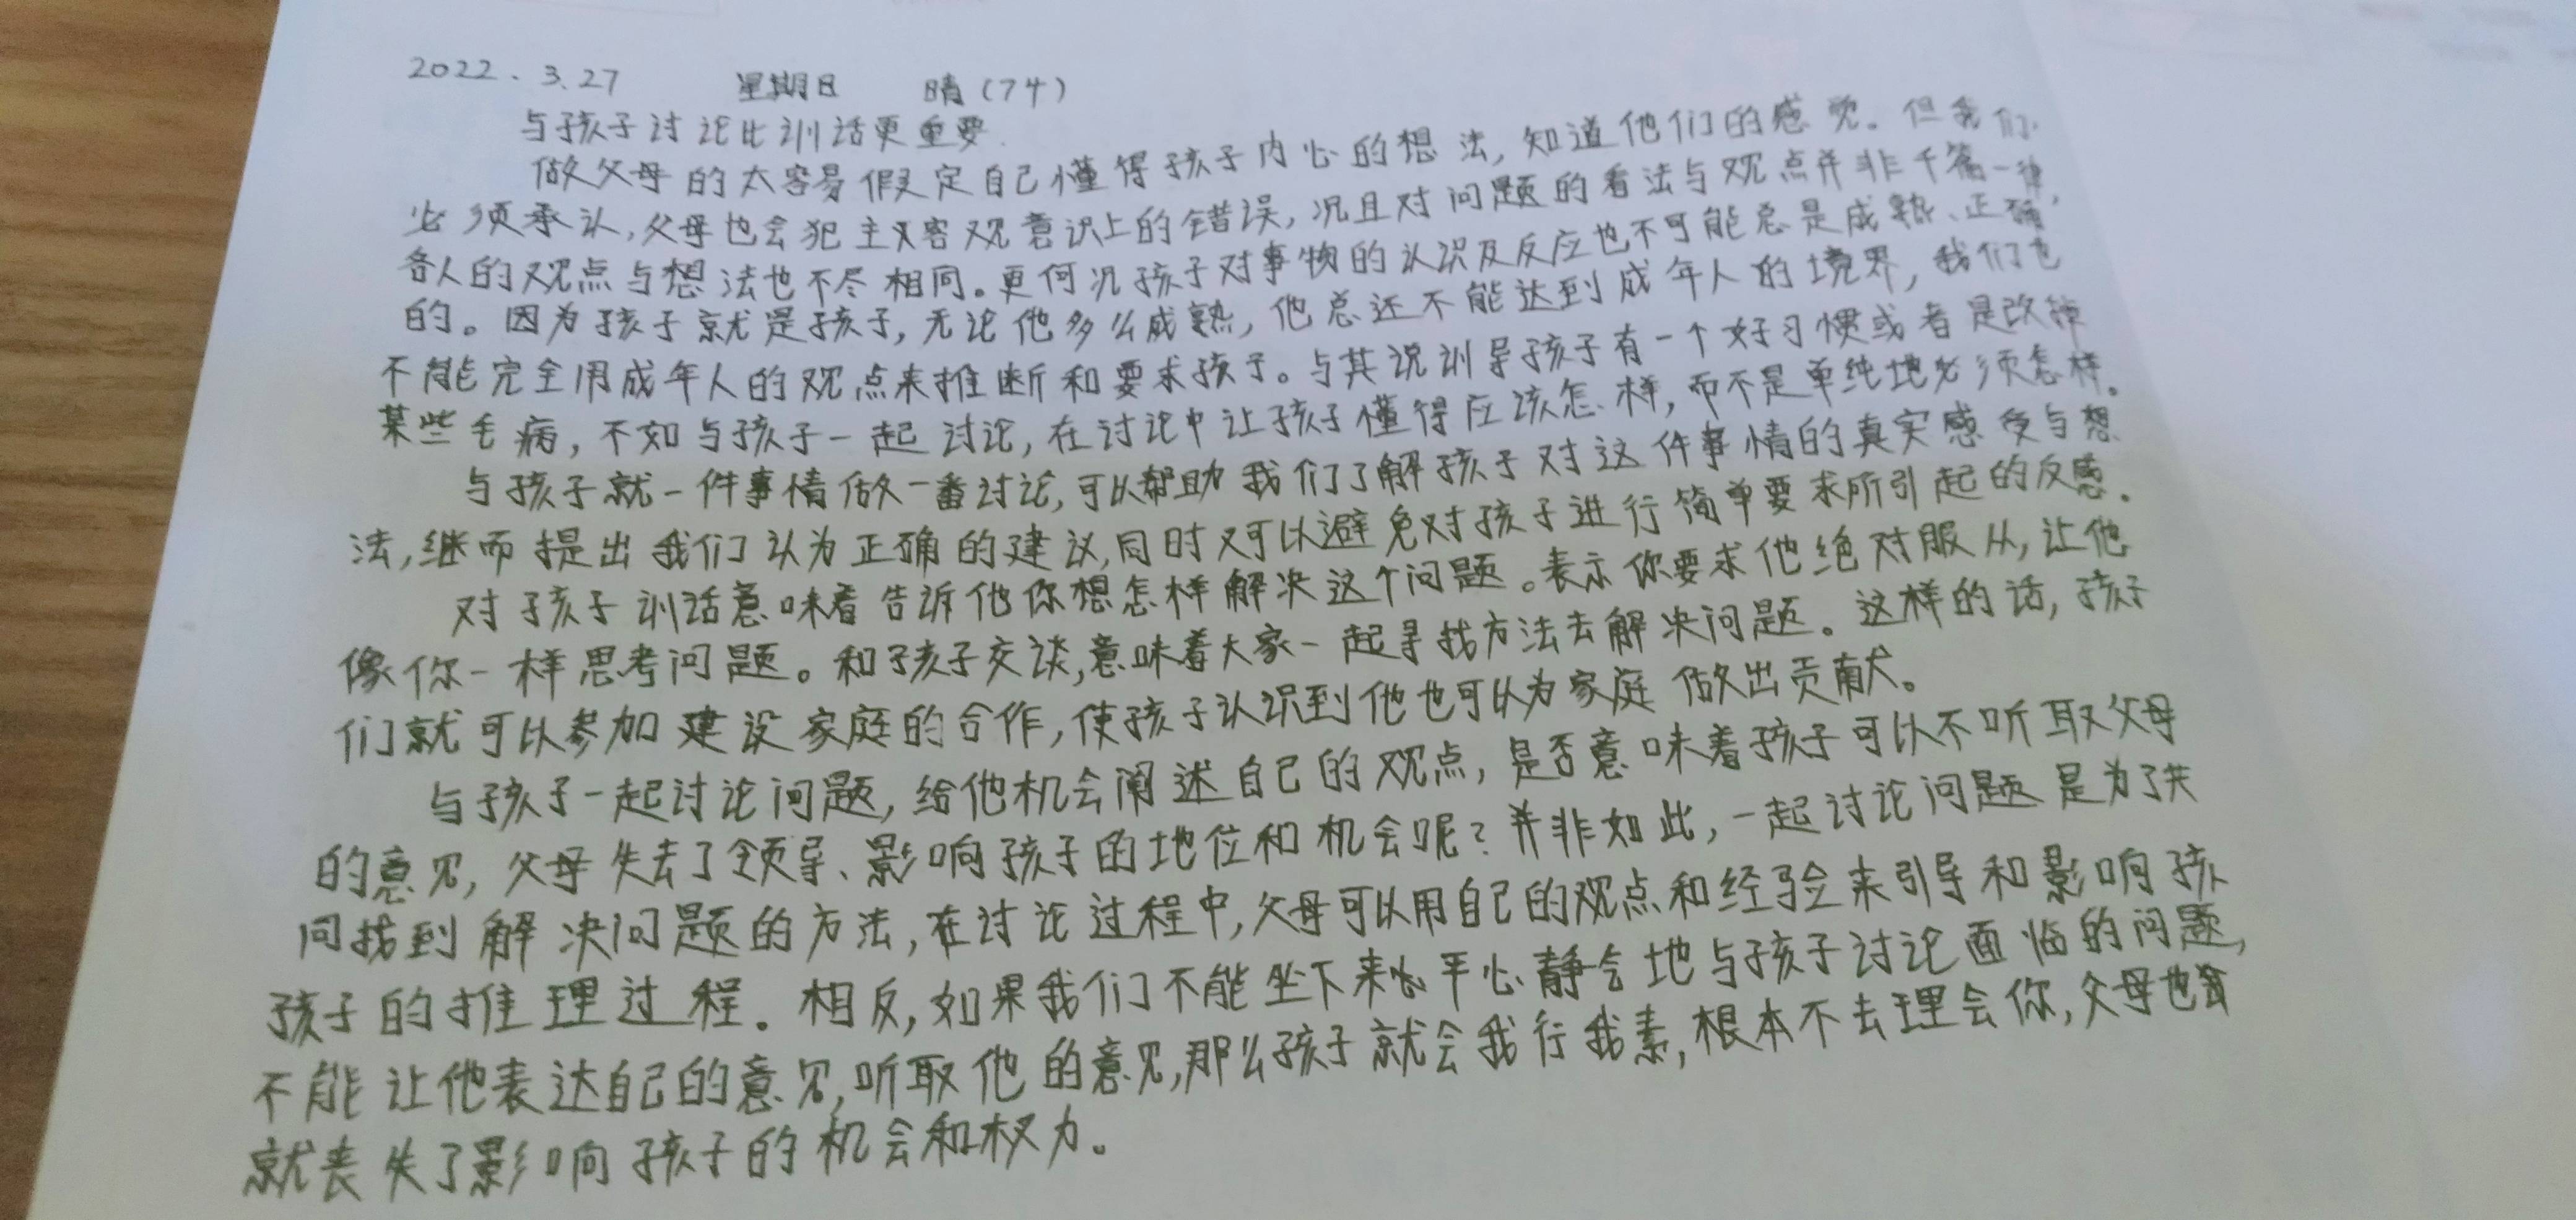 2022.3.27 星期日 晴(74)
与孩子讨论比训话更重要.
做父母的太容易假定自己懂得孩子内心的想法,知道他们的感觉。但我们
必须承认,父母也会犯主观意识上的错误,况且对问题的看法与观点并非千篇一律,
各人的观点与想法也不尽相同。更何况孩子对事物的认识及反应也不可能总是成熟、正确
的。因为孩子就是孩子,无论他多么成熟,他总还不能达到成年人的境界,我们也
不能完全用成年人的观点来推断和要求孩子。与其说训导孩子有一个好习惯或者是改掉
某些毛病,不如与孩子一起讨论,在讨论中让孩子懂得应该怎样,而不是单纯地必须怎样。
与孩子就一件事情做一番讨论,可以帮助我们了解孩子对这件事情的真实感受与想
法,继而提出我们认为正确的建议,同时又可以避免对孩子进行简单要求所引起的反感.
对孩子训话意味着告诉他你想怎样解决这个问题。表示你要求他绝对服从,让他
像你一样思考问题。和孩子交谈,意味着大家一起寻找方法去解决问题。这样的话,孩子
们就可以参加建设家庭的合作,使孩子认识到他也可以为家庭做出贡献。
与孩子一起讨论问题,给他机会阐述自己的观点,是否意味着孩子可以不听取父母
的意见,父母失去了领导、影响孩子的地位和机会呢?并非如此,一起讨论问题是为了共
同找到解决问题的方法,在讨论过程中,父母可以用自己的观点和经验来引导和影响孩
孩子的推理过程.相反,如果我们不能坐下来平心静气地与孩子讨论面临的问题,
不能让他表达自己的意见,听取他的意见,那么孩子就会我行我素,根本不去理会你,父母也
就丧失了影响孩子的机会和权力。